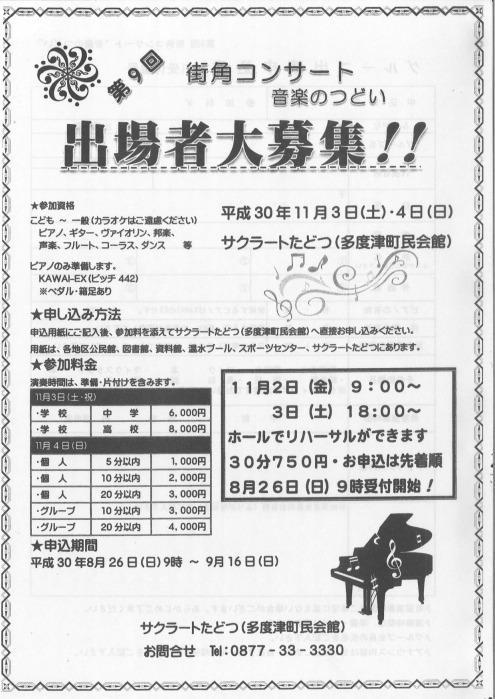 第9回
街角コンサート
音楽のつどい
出場者大募集!!
★参加資格
こども ～ 一般(カラオケはご遠慮ください)
ピアノ、ギター、ヴァイオリン、邦楽、
声楽、フルート、コーラス、ダンス 等
ピアノのみ準備します。
KAWAI-EX(ピッチ442)
※ペダル・箱足あり
平成30年11月3日(土)・4日(日)
サクラートたどつ(多度津町民会館)
★申し込み方法
申込用紙にご記入後、参加料を添えてサクラートたどつ(多度津町民会館)へ直接お申し込みください。
用紙は、各地区公民館、図書館、資料館、温水プール、スポーツセンター、サクラートたどつにあります。
★参加料金
演奏時間は、準備・片付けを含みます。
11月3日(土・祝)
・学 校 中 学 6,000円
・学 校 高 校 8,000円
11月4日(日)
・個 人 5分以内 1,000円
・個 人 10分以内 2,000円
・個 人 20分以内 3,000円
・グループ 10分以内 3,000円
・グループ 20分以内 4,000円
11月2日(金) 9:00～
3日(土) 18:00～
ホールでリハーサルができます
30分750円・お申込は先着順
8月26日(日)9時受付開始!
★申込期間
平成30年8月26日(日)9時 ～ 9月16日(日)
サクラートたどつ(多度津町民会館)
お問合せ Tel:0877-33-3330